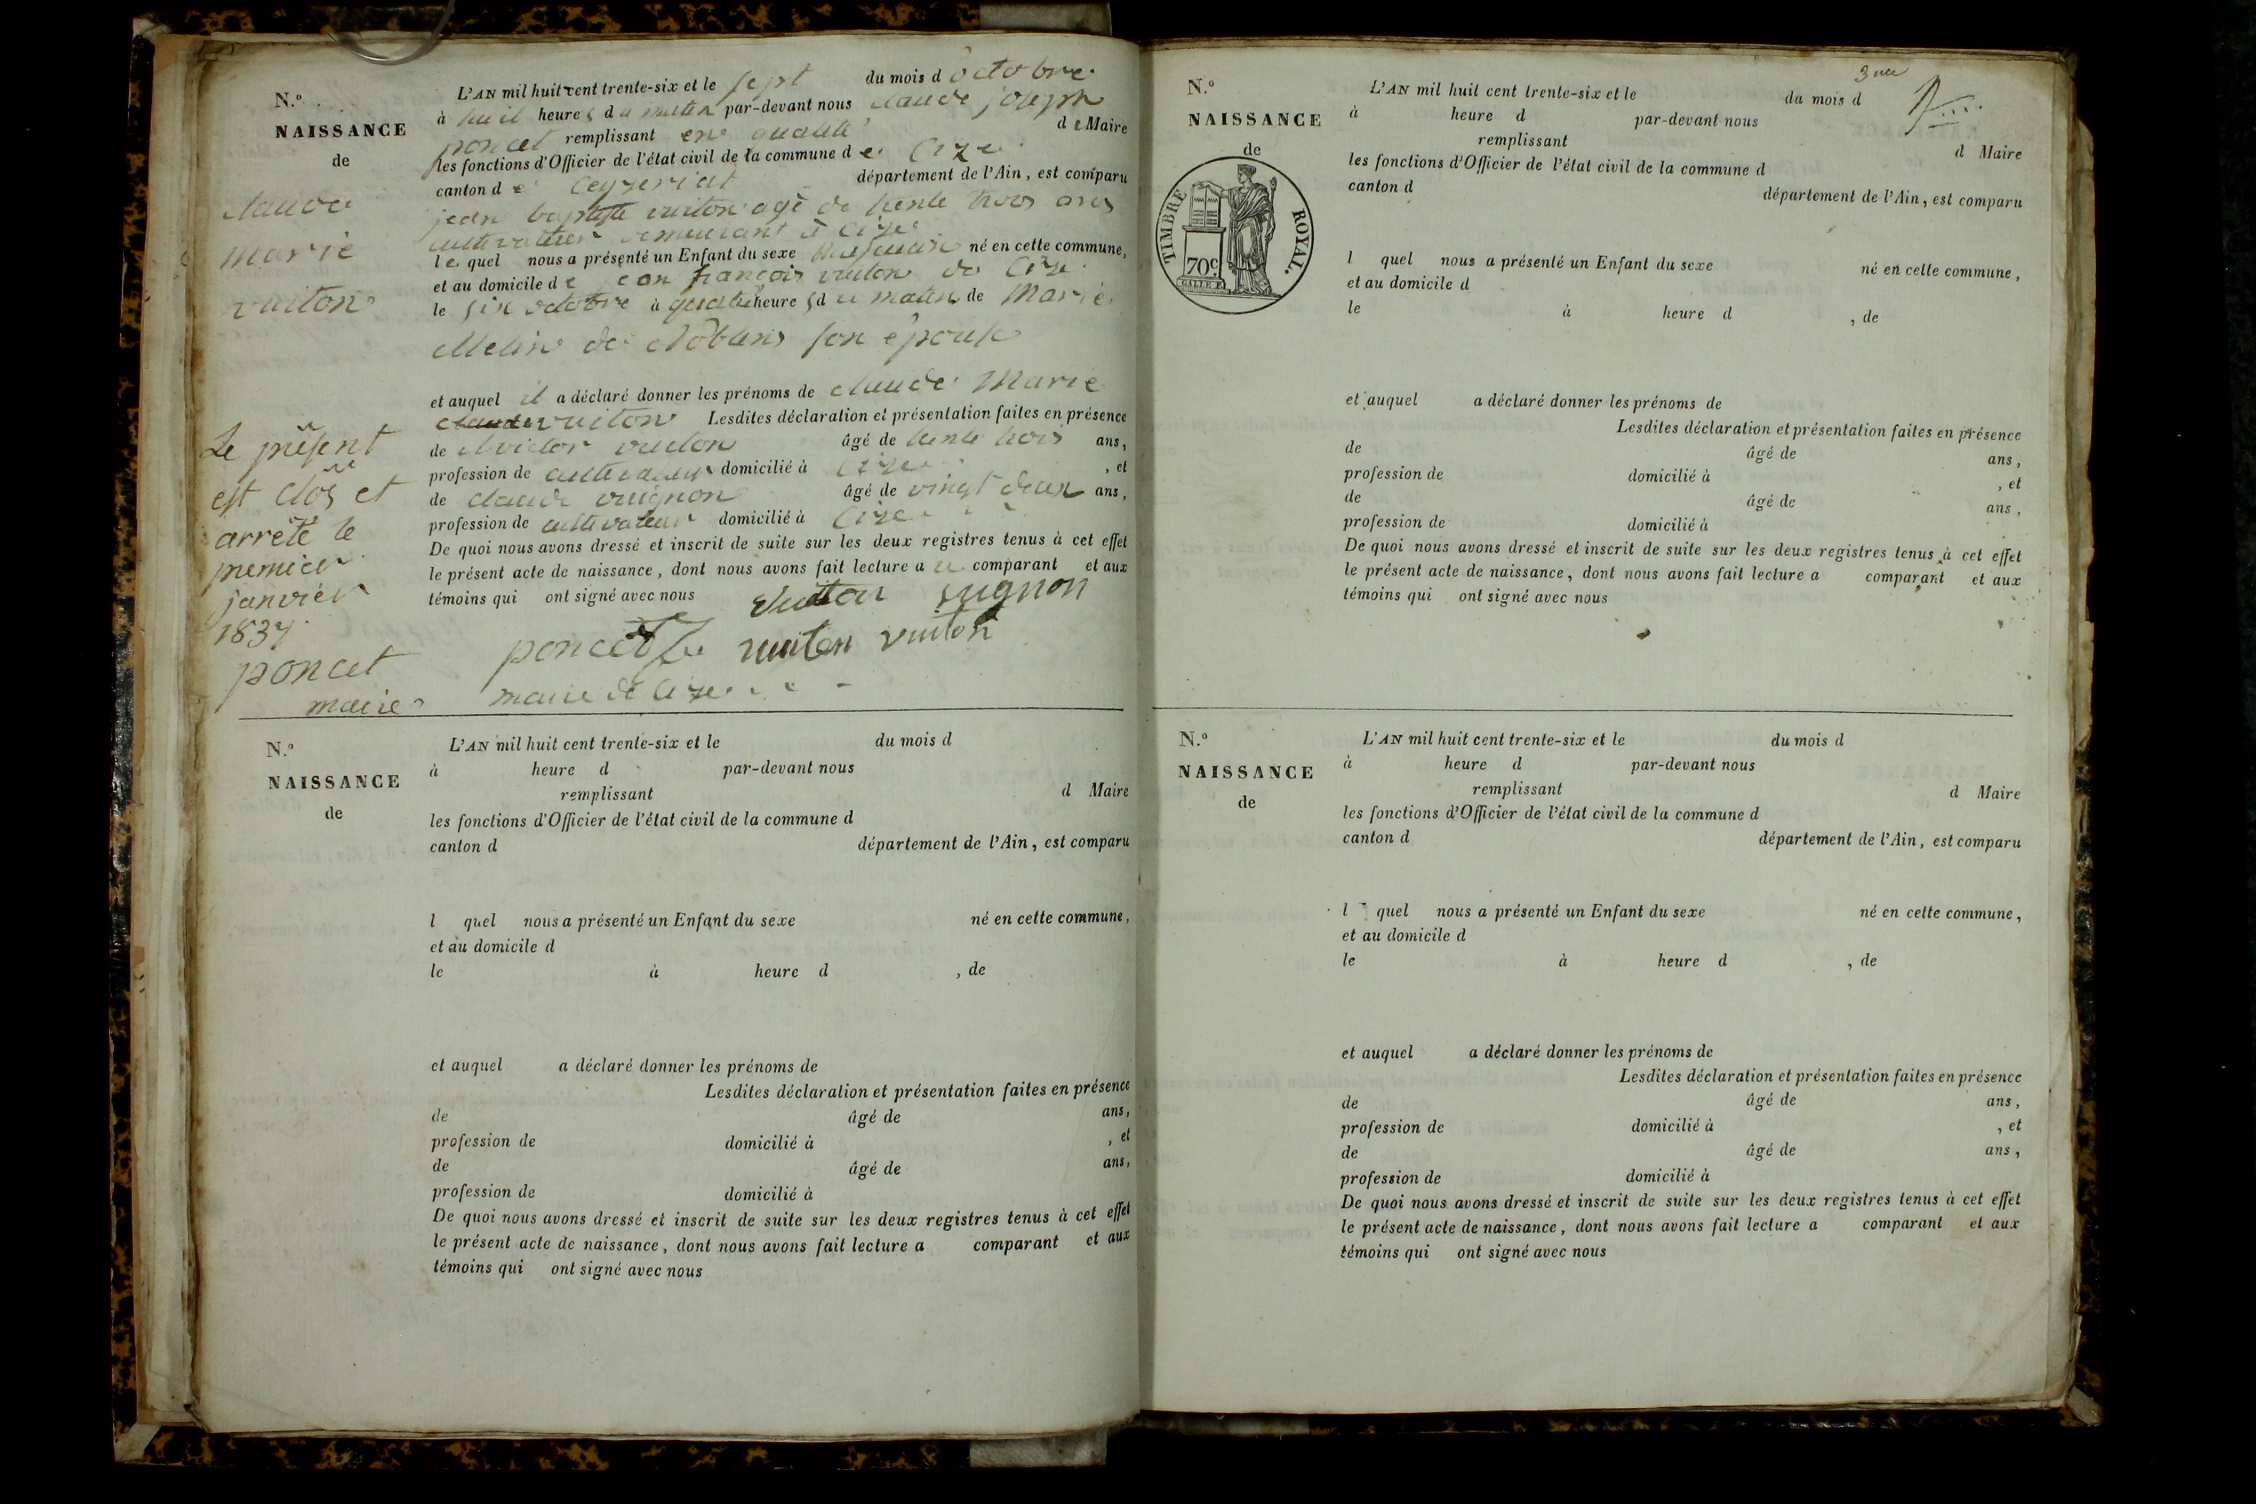 N.º
NAISSANCE
de
claude
marie
vuiton
L'AN mil huit cent trente-six et le sept du mois d octobre
à huit heures du matin par-devant nous claude joseph
poncet remplissant en qualité de Maire
les fonctions d'Officier de l'état civil de la commune de Cize
canton de Ceyzeriat département de l'Ain, est comparu
jean baptiste vuiton agé de trente trois ans
cultivateur demeurant à Cize
lequel nous a présenté un Enfant du sexe masculin né en cette commune,
et au domicile de jean françois vuiton de Cize
le six octobre à quatre heures du matin de Marie
son épouse
et auquel il a déclaré donner les prénoms de claude Marie
vuiton Lesdites déclaration et présentation faites en présence
de victor vuiton âgé de trente trois ans,
profession de cultivateur domicilié à Cize , et
de claude vugnon âgé de vingt deux ans,
profession de cultivateur domicilié à Cize
De quoi nous avons dressé et inscrit de suite sur les deux registres tenus à cet effet
le présent acte de naissance, dont nous avons fait lecture au comparant et aux
témoins qui ont signé avec nous
vuiton vugnon
poncet vuiton vuiton
maire de Cize
Le présent
est clos et
arrêté le
premier
janvier
1837
poncet
maire
N.º
NAISSANCE
de
L'AN mil huit cent trente-six et le du mois d
à heure d par-devant nous
remplissant d Maire
les fonctions d'Officier de l'état civil de la commune d
canton d département de l'Ain, est comparu
l quel nous a présenté un Enfant du sexe né en cette commune,
et au domicile d
le à heure d , de
et auquel a déclaré donner les prénoms de
Lesdites déclaration et présentation faites en présence
de âgé de ans,
profession de domicilié à , et
de âgé de ans,
profession de domicilié à
De quoi nous avons dressé et inscrit de suite sur les deux registres tenus à cet effet
le présent acte de naissance, dont nous avons fait lecture a comparant et aux
témoins qui ont signé avec nous
N.º
NAISSANCE
de
TIMBRE ROYAL.
70c
L'AN mil huit cent trente-six et le du mois d
à heure d par-devant nous
remplissant d Maire
les fonctions d'Officier de l'état civil de la commune d
canton d département de l'Ain, est comparu
l quel nous a présenté un Enfant du sexe né en cette commune,
et au domicile d
le à heure d , de
et auquel a déclaré donner les prénoms de
Lesdites déclaration et présentation faites en présence
de âgé de ans,
profession de domicilié à , et
de âgé de ans,
profession de domicilié à
De quoi nous avons dressé et inscrit de suite sur les deux registres tenus à cet effet
le présent acte de naissance, dont nous avons fait lecture a comparant et aux
témoins qui ont signé avec nous
N.º
NAISSANCE
de
L'AN mil huit cent trente-six et le du mois d
à heure d par-devant nous
remplissant d Maire
les fonctions d'Officier de l'état civil de la commune d
canton d département de l'Ain, est comparu
l quel nous a présenté un Enfant du sexe né en cette commune,
et au domicile d
le à heure d , de
et auquel a déclaré donner les prénoms de
Lesdites déclaration et présentation faites en présence
de âgé de ans,
profession de domicilié à , et
de âgé de ans,
profession de domicilié à
De quoi nous avons dressé et inscrit de suite sur les deux registres tenus à cet effet
le présent acte de naissance, dont nous avons fait lecture a comparant et aux
témoins qui ont signé avec nous